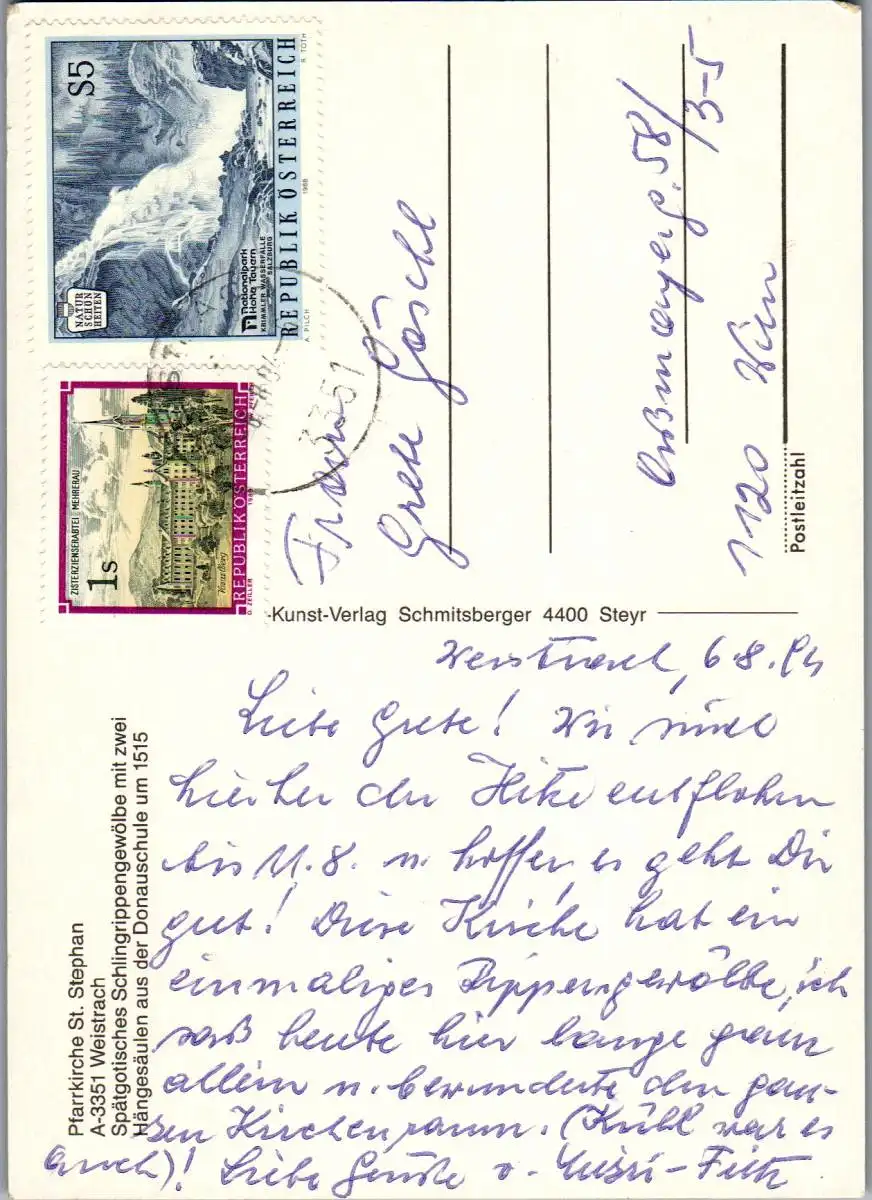 S5
REPUBLIK ÖSTERREICH
NATUR
SCHÖN
HEITEN
Nationalpark
Hohe Tauern
KRIMMLER WASSERFÄLLE
SALZBURG
A. PILCH
1988
R. TOTH
1s
ZISTERZIENSERABTEI MEHRERAU
Vorarlberg
REPUBLIK ÖSTERREICH
O. ZEILLER
3351
Frau
Grete Göschl
Aßmayerg. 58/
/3-5
1120 Wien
Postleitzahl
-Kunst-Verlag Schmitsberger 4400 Steyr
Pfarrkirche St. Stephan
A-3351 Weistrach
Spätgotisches Schlingrippengewölbe mit zwei
Hängesäulen aus der Donauschule um 1515
Weistrach, 6.8.94
Liebe Grete! Wir sind
hierher der Hitze entflohen
bis 11.8. u. hoffen, es geht Dir
gut! Diese Kirche hat ein
einmaliges Rippengewölbe, ich
saß heute hier lange ganz
allein u. bewunderte den gan-
zen Kirchenraum. (Kühl war es
auch)! Liebe Grüße v.